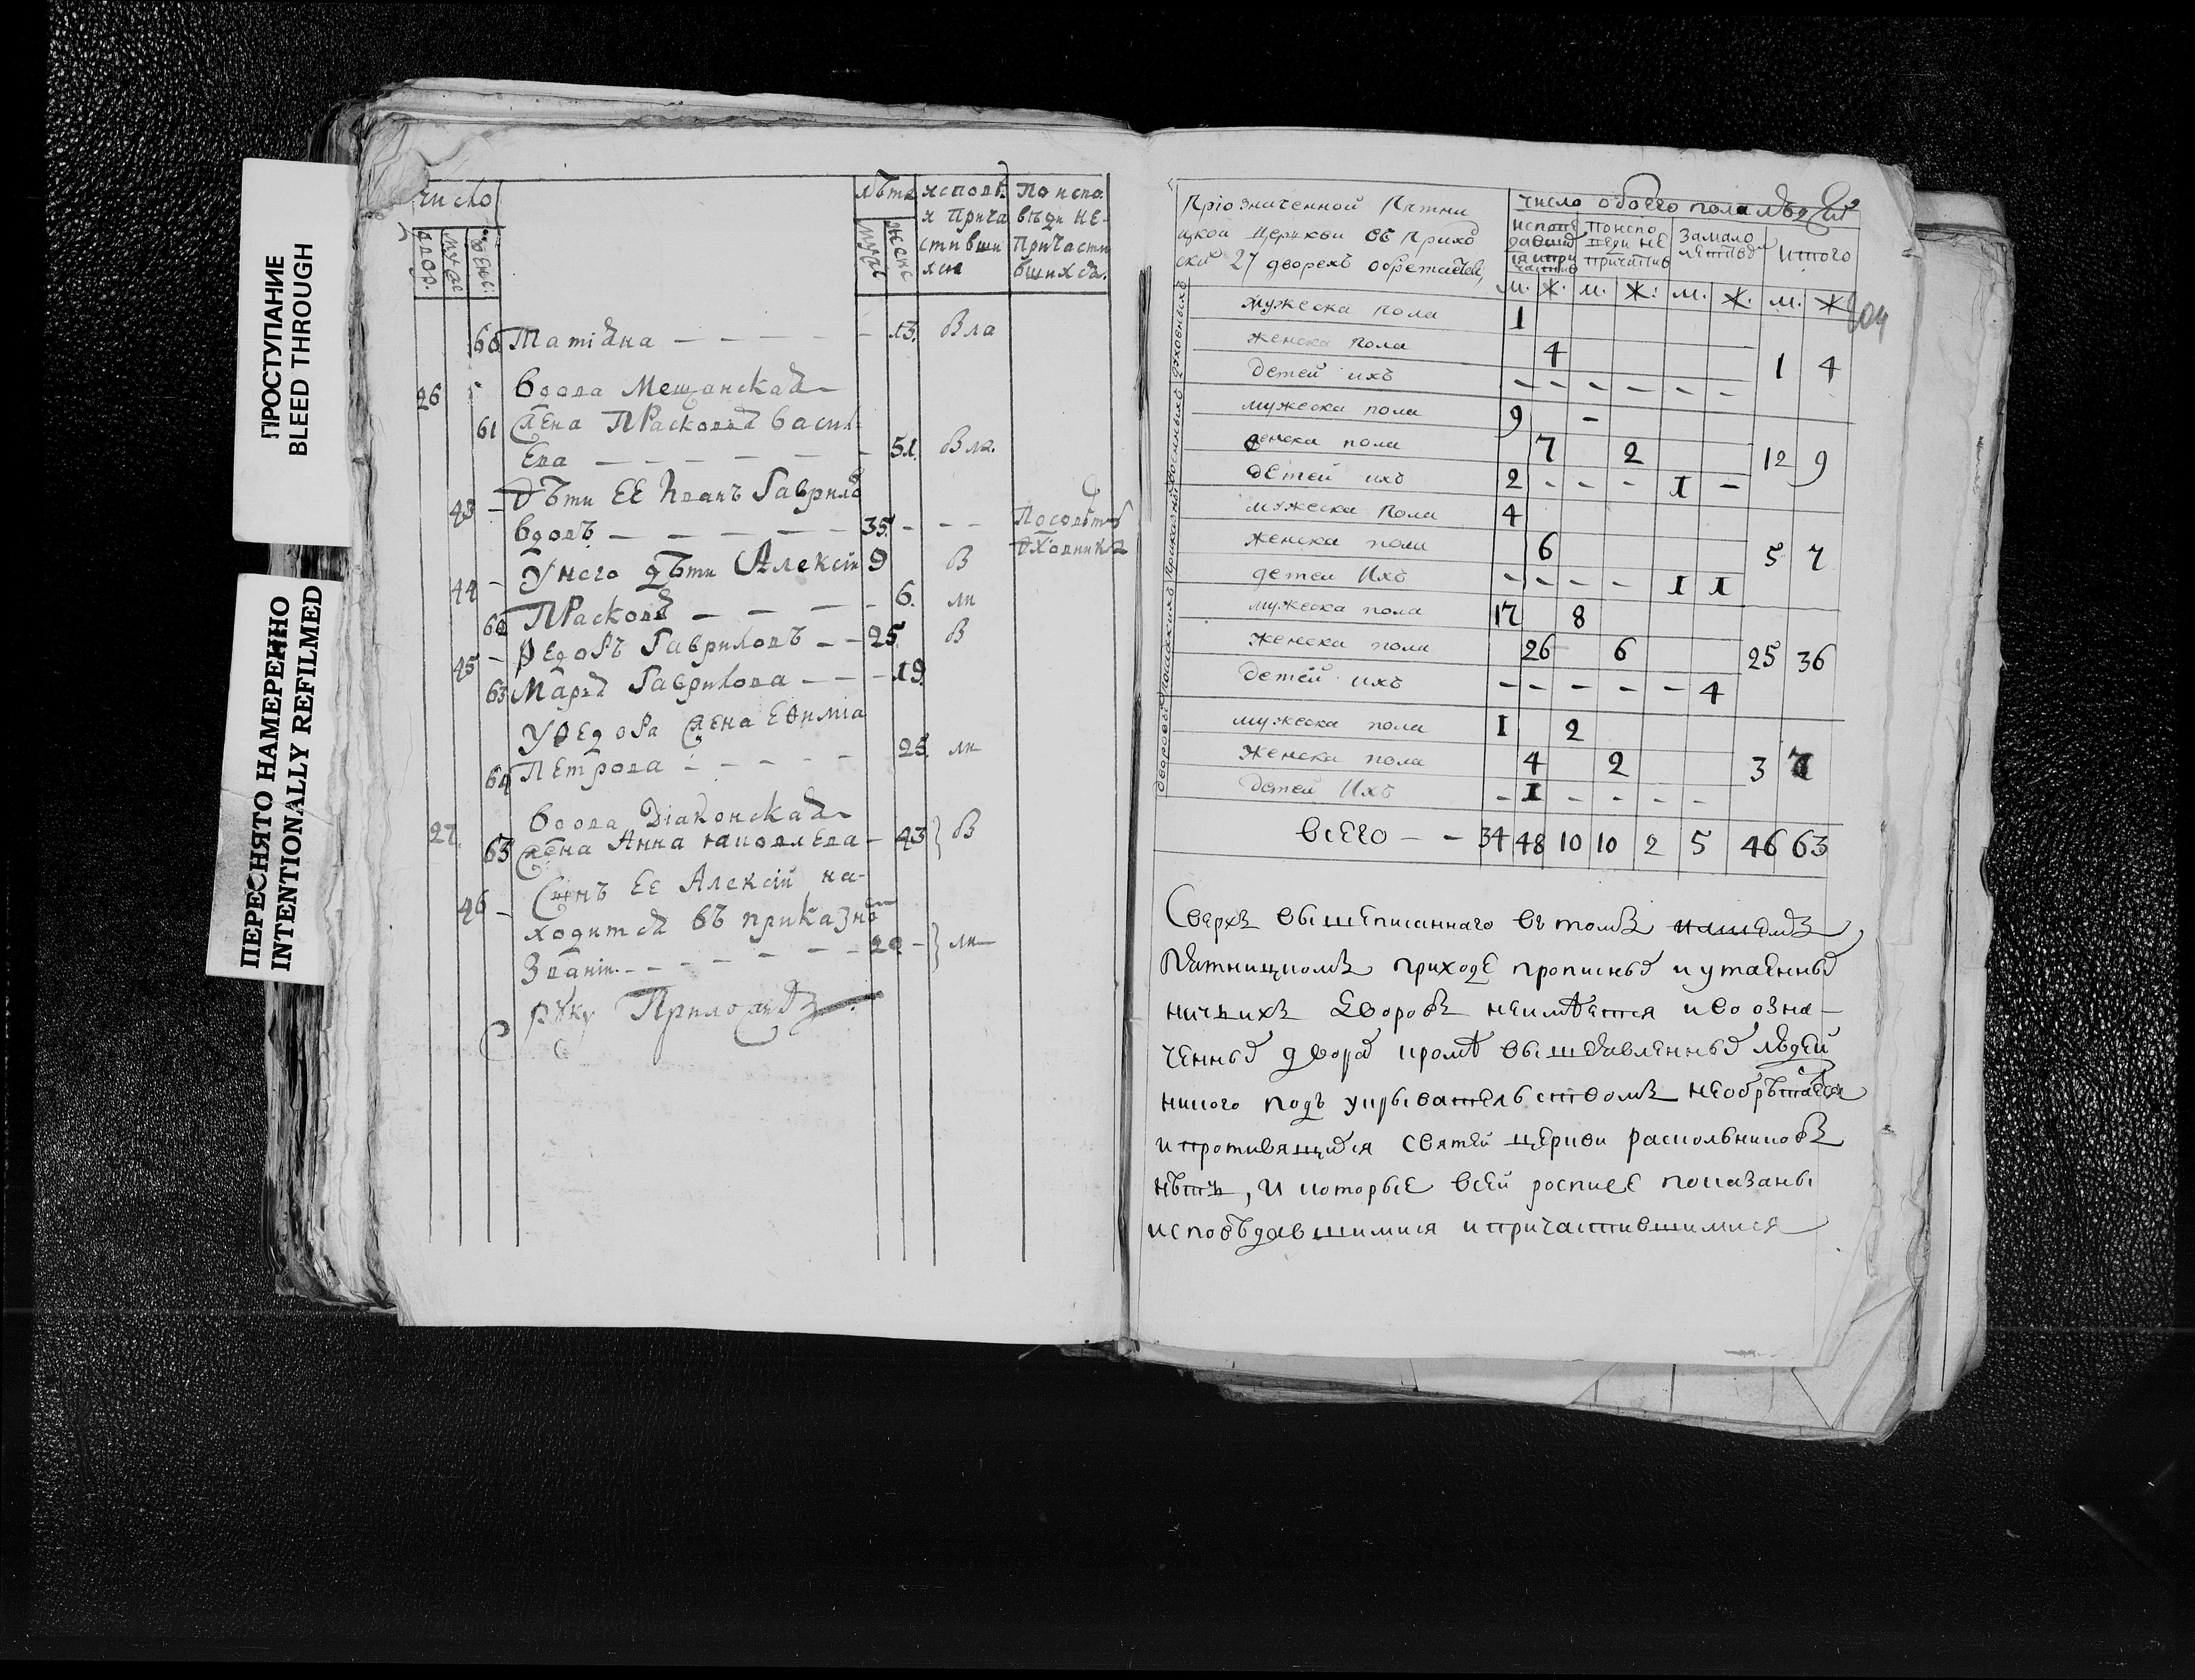 ПРОСТУПАНИЕ
BLEED THROUGH
ПЕРЕСНЯТО НАМЕРЕННО
INTENTIONALLY REFILMED
число
двор. муже женс:
лѣта
муже женс
исповѣ.
и прича
стивши
хся
По испо
вѣди не
причасти
вшихся.
60 Татiяна — — — — — 13. В ла
26 вдова Мещанская
61 жена Прасковья Васил
ева — — — — — — 51. В ла.
43 — Дѣти ее Иванъ Гаврило
вдовъ — — — — — 35. — — — По совѣту
духовника
44 — У него дѣти Алексiй 9 В
62 Прасковья — — — — 6. ли
45 — Ѳедоръ Гавриловъ — — 25. В
63 Марья Гаврилова — — — 19.
У Ѳедора жена Евѳимiа
64 Петрова — — — — — 25. ли
27. вдова Дiаконская
65 жена Анна Iаковлева — 43 } В
46 — Сынъ ее Алексiй на-
ходится въ приказно
званiи. — — — — — — 20 — } ли
руку Приложилъ
При означенной Пятни
цкой Церкви въ прихо
ски 27 дворехъ обретается
число обоего пола людей
исповѣ
давши
ся и при
частив
по испо
веди не
причастив
за мало
летство
итого
м. ж. м. ж: м. ж. м. ж
204
духовныхъ
мужеска пола 1
женска пола 4 1 4
детей ихъ — — — — — —
военныхъ
мужеска пола 9 —
женска пола 7 2 12 9
детей ихъ 2 — — — 1 —
приказны
мужеска пола 4
женска пола 6 5 7
детей ихъ — — — — 1 1
посацкихъ
мужеска пола 17 8
женска пола 26 6 25 36
детей ихъ — — — — — 4
дворовы
мужеска пола 1 2
женска пола 4 2 3 7
детей ихъ — 1 — — — —
всего — — 34 48 10 10 2 5 46 63
Сверхъ вышеписаннаго въ томъ нашемъ
Пятницкомъ приходе прописныя и утаенныя
ничьихъ дворовъ неимѣется и во озна-
ченныя дворы кромѣ вышеявленныя людей
никого подъ укрывательствомъ необрѣтается
и противящися святей церкви раскольниковъ
нѣтъ, и которые в сей росписе показаны
исповѣдавшимися и причастившимися